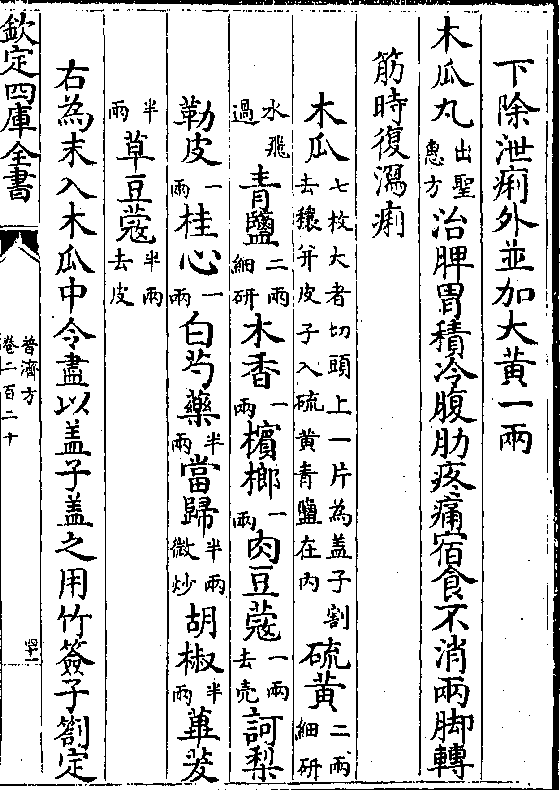 下除泄痢外並加大黄一兩
木瓜丸出聖惠方治脾胃積冷腹肋疼痛宿食不消兩脚轉
筋時復瀉痢
木瓜七枚大者切頭上一片為盖子割去穰并皮子入硫黄青鹽在内硫黄二兩細研
水飛過青鹽二兩細研木香一兩檳榔一兩肉豆蔻一兩去壳訶梨
勒皮一兩桂心一兩白芍藥半兩當歸半兩微炒胡椒半兩蓽茇
半兩草豆蔻半兩去皮
右為末入木瓜中令盡以盖子盖之用竹簽子劄定
欽定四庫全書
普濟方
卷二百二十
四十一